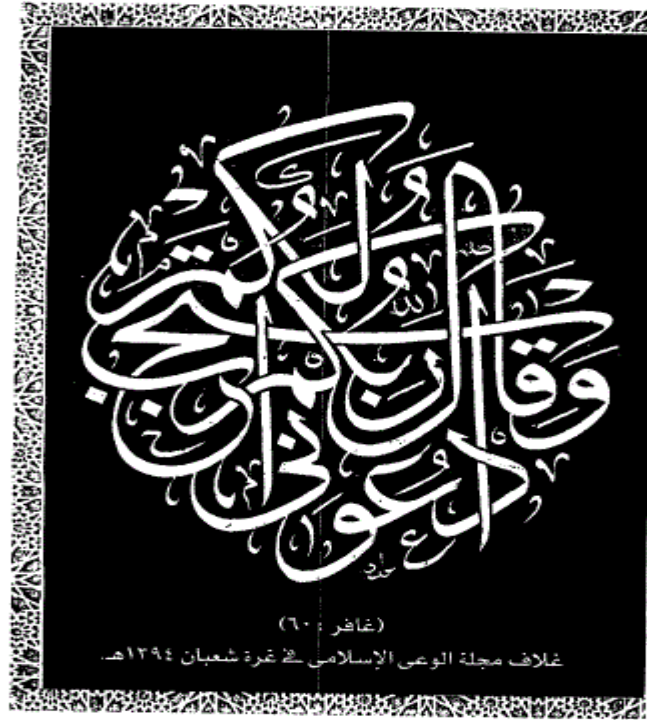 وقال ربكم ادعوني أستجب لكم
(غافر : ٦٠)
غلاف مجلة الوعى الإسلامى فى غرة شعبان ١٣٩٤هـ.